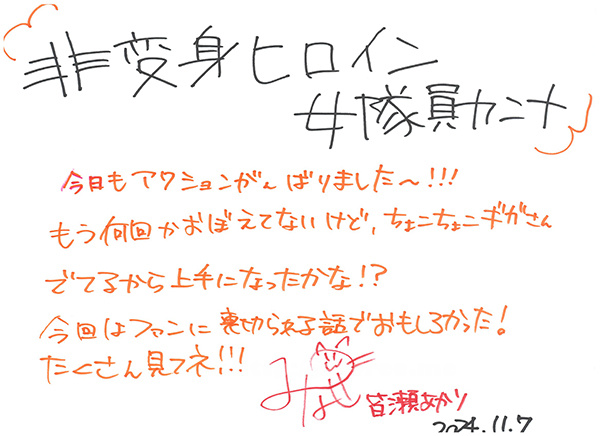 非変身ヒロイン
女隊員カンナ
今日もアクションがんばりました〜!!!
もう何回かおぼえてないけど、ちょこちょこギガさん
でてるから上手になったかな!?
今回はファンに裏切られる話でおもしろかった!
たくさん見てネ!!!
みなせ
皆瀬あかり
2024.11.7